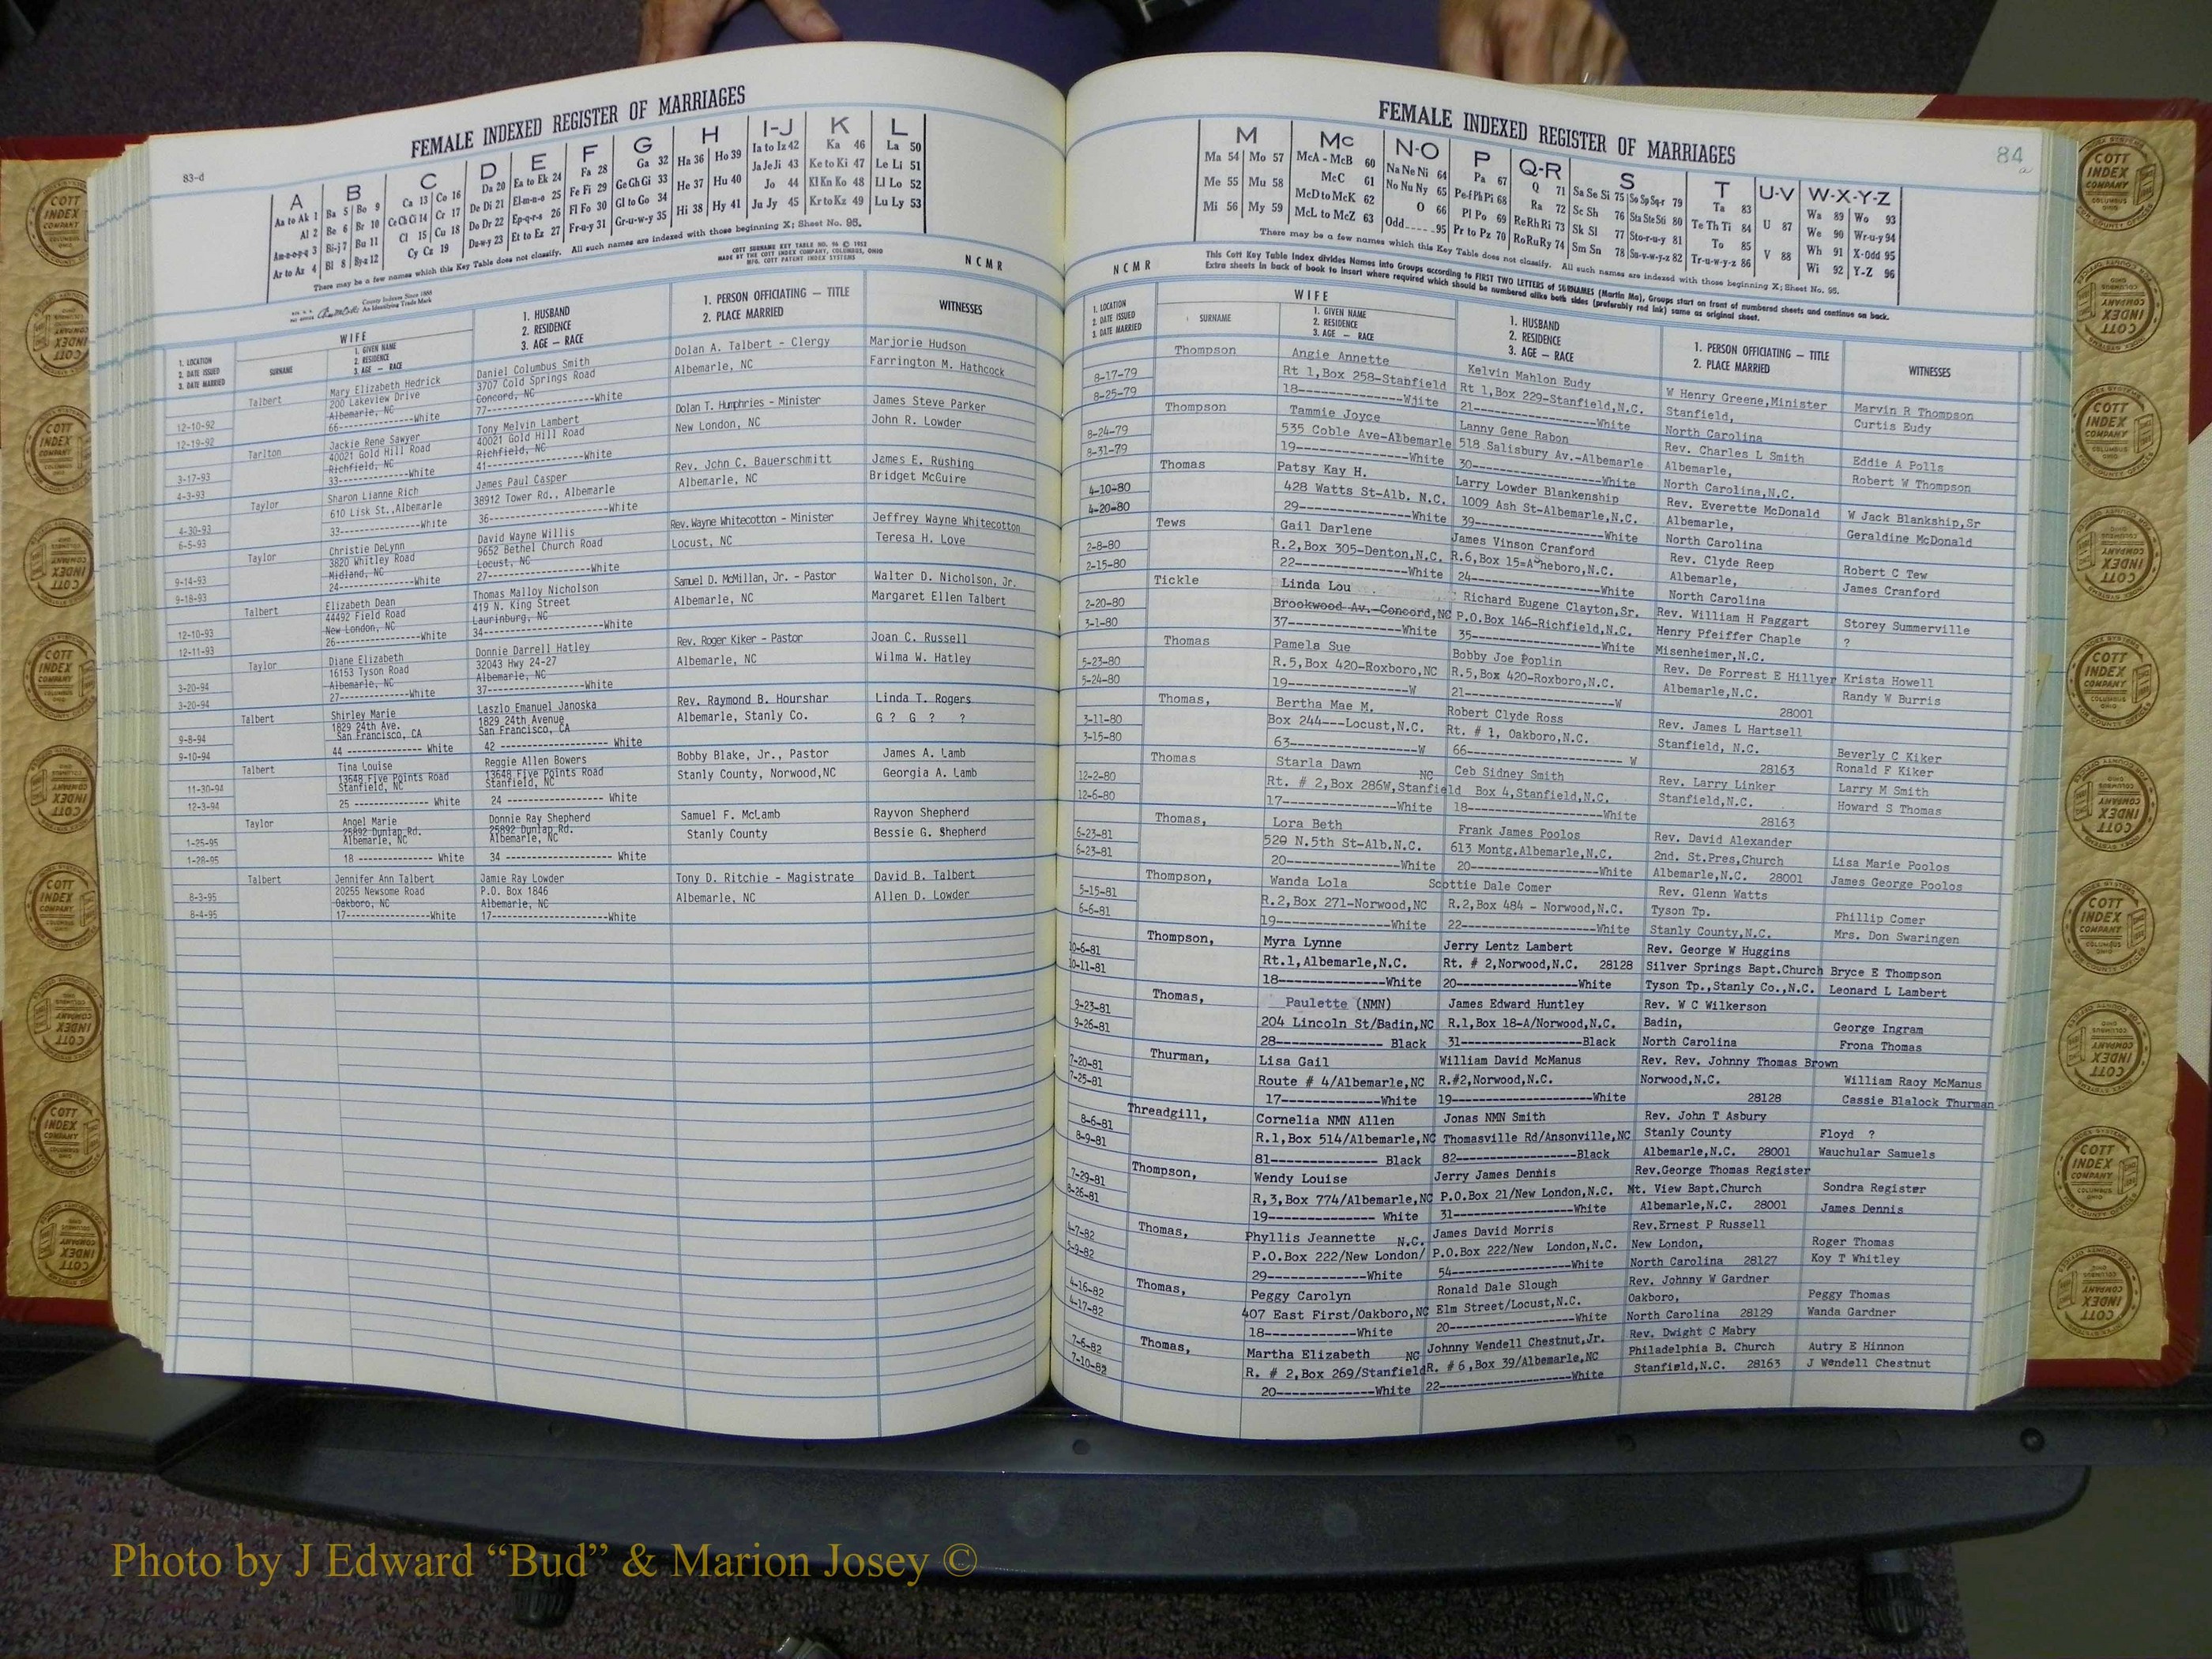 FEMALE INDEXED REGISTER OF MARRIAGES
83-d
A B C D E F G H I-J K L
Aa to Ak 1 Ba 5 Bo 9 Ca 13 Co 16 Da 20 Ea to Ek 24 Fa 28 Ga 32 Ha 36 Ho 39 Ia to Iz 42 Ka 46 La 50
Al 2 Be 6 Br 10 Ce Ch Ci 14 Cr 17 De Di 21 El-m-n-o 25 Fe Fi 29 Ge Gh Gi 33 He 37 Hu 40 Ja Je Ji 43 Ke to Ki 47 Le Li 51
Am-n-o-p-q 3 Bi-j 7 Bu 11 Cl 15 Cu 18 Do Dr 22 Ep-q-r-s 26 Fl Fo 30 Gl to Go 34 Hi 38 Hy 41 Jo 44 Kl Kn Ko 48 Ll Lo 52
Ar to Az 4 Bl 8 By-z 12 Cy Cz 19 Du-w-y 23 Et to Ez 27 Fr-u-y 31 Gr-u-w-y 35 Ju Jy 45 Kr to Kz 49 Lu Ly 53
There may be a few names which this Key Table does not classify. All such names are indexed with those beginning X; Sheet No. 95.
COTT SURNAME KEY TABLE NO. 96 © 1952
MADE BY THE COTT INDEX COMPANY, COLUMBUS, OHIO
MFG. COTT PATENT INDEX SYSTEMS
County Indexes Since 1888
An Identifying Trade Mark
N C M R
1. LOCATION
2. DATE ISSUED
3. DATE MARRIED
WIFE
SURNAME
1. GIVEN NAME
2. RESIDENCE
3. AGE — RACE
1. HUSBAND
2. RESIDENCE
3. AGE — RACE
1. PERSON OFFICIATING — TITLE
2. PLACE MARRIED
WITNESSES
Talbert Mary Elizabeth Hedrick Daniel Columbus Smith Dolan A. Talbert - Clergy Marjorie Hudson
200 Lakeview Drive 3707 Cold Springs Road Albemarle, NC Farrington M. Hathcock
12-10-92 Albemarle, NC Concord, NC
12-19-92 66-----------White 77-----------White
Tarlton Jackie Rene Sawyer Tony Melvin Lambert Dolan T. Humphries - Minister James Steve Parker
40021 Gold Hill Road 40021 Gold Hill Road New London, NC John R. Lowder
3-17-93 Richfield, NC Richfield, NC
4-3-93 33-----------White 41-----------White
Taylor Sharon Lianne Rich James Paul Casper Rev. John C. Bauerschmitt James E. Rushing
610 Lisk St.,Albemarle 38912 Tower Rd., Albemarle Albemarle, NC Bridget McGuire
4-30-93
6-5-93 33-----------White 36-----------White
Taylor Christie DeLynn David Wayne Willis Rev. Wayne Whitecotton - Minister Jeffrey Wayne Whitecotton
3820 Whitley Road 9652 Bethel Church Road Locust, NC Teresa H. Love
9-14-93 Midland, NC Locust, NC
9-18-93 24-----------White 27-----------White
Talbert Elizabeth Dean Thomas Malloy Nicholson Samuel D. McMillan, Jr. - Pastor Walter D. Nicholson, Jr.
44492 Field Road 419 N. King Street Albemarle, NC Margaret Ellen Talbert
12-10-93 New London, NC Laurinburg, NC
12-11-93 26-----------White 34-----------White
Taylor Diane Elizabeth Donnie Darrell Hatley Rev. Roger Kiker - Pastor Joan C. Russell
16153 Tyson Road 32043 Hwy 24-27 Albemarle, NC Wilma W. Hatley
3-20-94 Albemarle, NC Albemarle, NC
3-20-94 27-----------White 37-----------White
Talbert Shirley Marie Laszlo Emanuel Janoska Rev. Raymond B. Hourshar Linda T. Rogers
1829 24th Ave. 1829 24th Avenue Albemarle, Stanly Co. G ? G ? ?
9-8-94 San Francisco, CA San Francisco, CA
9-10-94 44 ----------- White 42 ----------- White
Talbert Tina Louise Reggie Allen Bowers Bobby Blake, Jr., Pastor James A. Lamb
13648 Five Points Road 13648 Five Points Road Stanly County, Norwood,NC Georgia A. Lamb
11-30-94 Stanfield, NC Stanfield, NC
12-3-94 25 ----------- White 24 ----------- White
Taylor Angel Marie Donnie Ray Shepherd Samuel F. McLamb Rayvon Shepherd
25892 Dunlap Rd. 25892 Dunlap Rd. Stanly County Bessie G. Shepherd
1-25-95 Albemarle, NC Albemarle, NC
1-28-95 18 ----------- White 34 ----------- White
Talbert Jennifer Ann Talbert Jamie Ray Lowder Tony D. Ritchie - Magistrate David B. Talbert
20255 Newsome Road P.O. Box 1846 Albemarle, NC Allen D. Lowder
8-3-95 Oakboro, NC Albemarle, NC
8-4-95 17-----------White 17-----------White
FEMALE INDEXED REGISTER OF MARRIAGES
84
a
M Mc N-O P Q-R S T U-V W-X-Y-Z
Ma 54 Mo 57 McA - McB 60 Na Ne Ni 64 Pa 67 Q 71 Sa Se Si 75 So Sp Sq-r 79 Ta 83 Wa 89 Wo 93
Me 55 Mu 58 McC 61 No Nu Ny 65 Pe-f Ph Pi 68 Ra 72 Sc Sh 76 Sta Ste Sti 80 Te Th Ti 84 U 87 We 90 Wr-u-y 94
Mi 56 My 59 McD to McK 62 O 66 Pl Po 69 Re Rh Ri 73 Sk Sl 77 Sto-r-u-y 81 To 85 Wh 91 X-Odd 95
McL to McZ 63 Odd 95 Pr to Pz 70 Ro Ru Ry 74 Sm Sn 78 Su-v-w-y-z 82 Tr-u-w-y-z 86 V 88 Wi 92 Y-Z 96
There may be a few names which this Key Table does not classify. All such names are indexed with those beginning X; Sheet No. 95.
This Cott Key Table Index divides Names into Groups according to FIRST TWO LETTERS of SURNAMES (Martin Ma), Groups start on front of numbered sheets and continue on back.
Extra sheets in back of book to insert where required which should be numbered alike both sides (preferably red ink) same as original sheet.
N C M R
1. LOCATION
2. DATE ISSUED
3. DATE MARRIED
WIFE
SURNAME
1. GIVEN NAME
2. RESIDENCE
3. AGE — RACE
1. HUSBAND
2. RESIDENCE
3. AGE — RACE
1. PERSON OFFICIATING — TITLE
2. PLACE MARRIED
WITNESSES
Thompson Angie Annette Kelvin Mahlon Eudy W Henry Greene,Minister Marvin R Thompson
8-17-79 Rt 1,Box 258-Stanfield Rt 1,Box 229-Stanfield,N.C. Stanfield, Curtis Eudy
8-25-79 18-----------Wjite 21-----------White North Carolina
Thompson Tammie Joyce Lanny Gene Rabon Rev. Charles L Smith Eddie A Polls
8-24-79 535 Coble Ave-Albemarle 518 Salisbury Av.-Albemarle Albemarle, Robert W Thompson
8-31-79 19-----------White 30-----------White North Carolina,N.C.
Thomas Patsy Kay H. Larry Lowder Blankenship Rev. Everette McDonald W Jack Blankship,Sr
4-10-80 428 Watts St-Alb. N.C. 1009 Ash St-Albemarle,N.C. Albemarle, Geraldine McDonald
4-20-80 29-----------White 39-----------White North Carolina
Tews Gail Darlene James Vinson Cranford Rev. Clyde Reep Robert C Tew
2-8-80 R.2,Box 305-Denton,N.C. R.6,Box 15=Asheboro,N.C. Albemarle, James Cranford
2-15-80 22-----------White 24-----------White North Carolina
Tickle Linda Lou Richard Eugene Clayton,Sr. Rev. William H Faggart Storey Summerville
2-20-80 Brookwood Av.-Concord,NC P.O.Box 146-Richfield,N.C. Henry Pfeiffer Chaple ?
3-1-80 37-----------White 35-----------White Misenheimer,N.C.
Thomas Pamela Sue Bobby Joe Poplin Rev. De Forrest E Hillyer Krista Howell
5-23-80 R.5,Box 420-Roxboro,NC R.5,Box 420-Roxboro,N.C. Albemarle,N.C. Randy W Burris
5-24-80 19-----------W 21-----------W 28001
Thomas, Bertha Mae M. Robert Clyde Ross Rev. James L Hartsell Beverly C Kiker
3-11-80 Box 244---Locust,N.C. Rt. # 1, Oakboro,N.C. Stanfield, N.C. Ronald F Kiker
3-15-80 63-----------W 66----------- W 28163
Thomas Starla Dawn NC Ceb Sidney Smith Rev. Larry Linker Larry M Smith
12-2-80 Rt. # 2,Box 286W,Stanfield Box 4,Stanfield,N.C. Stanfield,N.C. Howard S Thomas
12-6-80 17-----------White 18-----------White 28163
Thomas, Lora Beth Frank James Poolos Rev. David Alexander Lisa Marie Poolos
6-23-81 520 N.5th St-Alb.N.C. 613 Montg.Albemarle,N.C. 2nd. St.Pres,Church James George Poolos
6-23-81 20-----------White 20-----------White Albemarle,N.C. 28001
Thompson, Wanda Lola Scottie Dale Comer Rev. Glenn Watts Phillip Comer
5-15-81 R.2,Box 271-Norwood,NC R.2,Box 484 - Norwood,N.C. Tyson Tp. Mrs. Don Swaringen
6-6-81 19-----------White 22-----------White Stanly County,N.C.
Thompson, Myra Lynne Jerry Lentz Lambert Rev. George W Huggins
10-6-81 Rt.1,Albemarle,N.C. Rt. # 2,Norwood,N.C. 28128 Silver Springs Bapt.Church Bryce E Thompson
10-11-81 18-----------White 20-----------White Tyson Tp.,Stanly Co.,N.C. Leonard L Lambert
Thomas, Paulette (NMN) James Edward Huntley Rev. W C Wilkerson
9-23-81 204 Lincoln St/Badin,NC R.1,Box 18-A/Norwood,N.C. Badin, George Ingram
9-26-81 28----------- Black 31-----------Black North Carolina Frona Thomas
Thurman, Lisa Gail William David McManus Rev. Rev. Johnny Thomas Brown
7-20-81 Route # 4/Albemarle,NC R.#2,Norwood,N.C. Norwood,N.C. William Raoy McManus
7-25-81 17-----------White 19-----------White 28128 Cassie Blalock Thurman
Threadgill, Cornelia NMN Allen Jonas NMN Smith Rev. John T Asbury
8-6-81 R.1,Box 514/Albemarle,NC Thomasville Rd/Ansonville,NC Stanly County Floyd ?
8-9-81 81----------- Black 82-----------Black Albemarle,N.C. 28001 Wauchular Samuels
Thompson, Wendy Louise Jerry James Dennis Rev.George Thomas Register
7-29-81 R,3,Box 774/Albemarle,NC P.O.Box 21/New London,N.C. Mt. View Bapt.Church Sondra Register
8-26-81 19----------- White 31-----------White Albemarle,N.C. 28001 James Dennis
Thomas, Phyllis Jeannette N.C. James David Morris Rev.Ernest P Russell
4-7-82 P.O.Box 222/New London/ P.O.Box 222/New London,N.C. New London, Roger Thomas
5-9-82 29-----------White 54-----------White North Carolina 28127 Koy T Whitley
Thomas, Peggy Carolyn Ronald Dale Slough Rev. Johnny W Gardner
4-16-82 407 East First/Oakboro,NC Elm Street/Locust,N.C. Oakboro, Peggy Thomas
4-17-82 18-----------White 20-----------White North Carolina 28129 Wanda Gardner
Thomas, Martha Elizabeth NC Johnny Wendell Chestnut,Jr. Rev. Dwight C Mabry
7-6-82 R. # 2,Box 269/Stanfield R. # 6,Box 39/Albemarle,NC Philadelphia B. Church Autry E Hinnon
7-10-82 20-----------White 22-----------White Stanfield,N.C. 28163 J Wendell Chestnut
COTT INDEX COMPANY COLUMBUS OHIO
Photo by J Edward “Bud” & Marion Josey ©